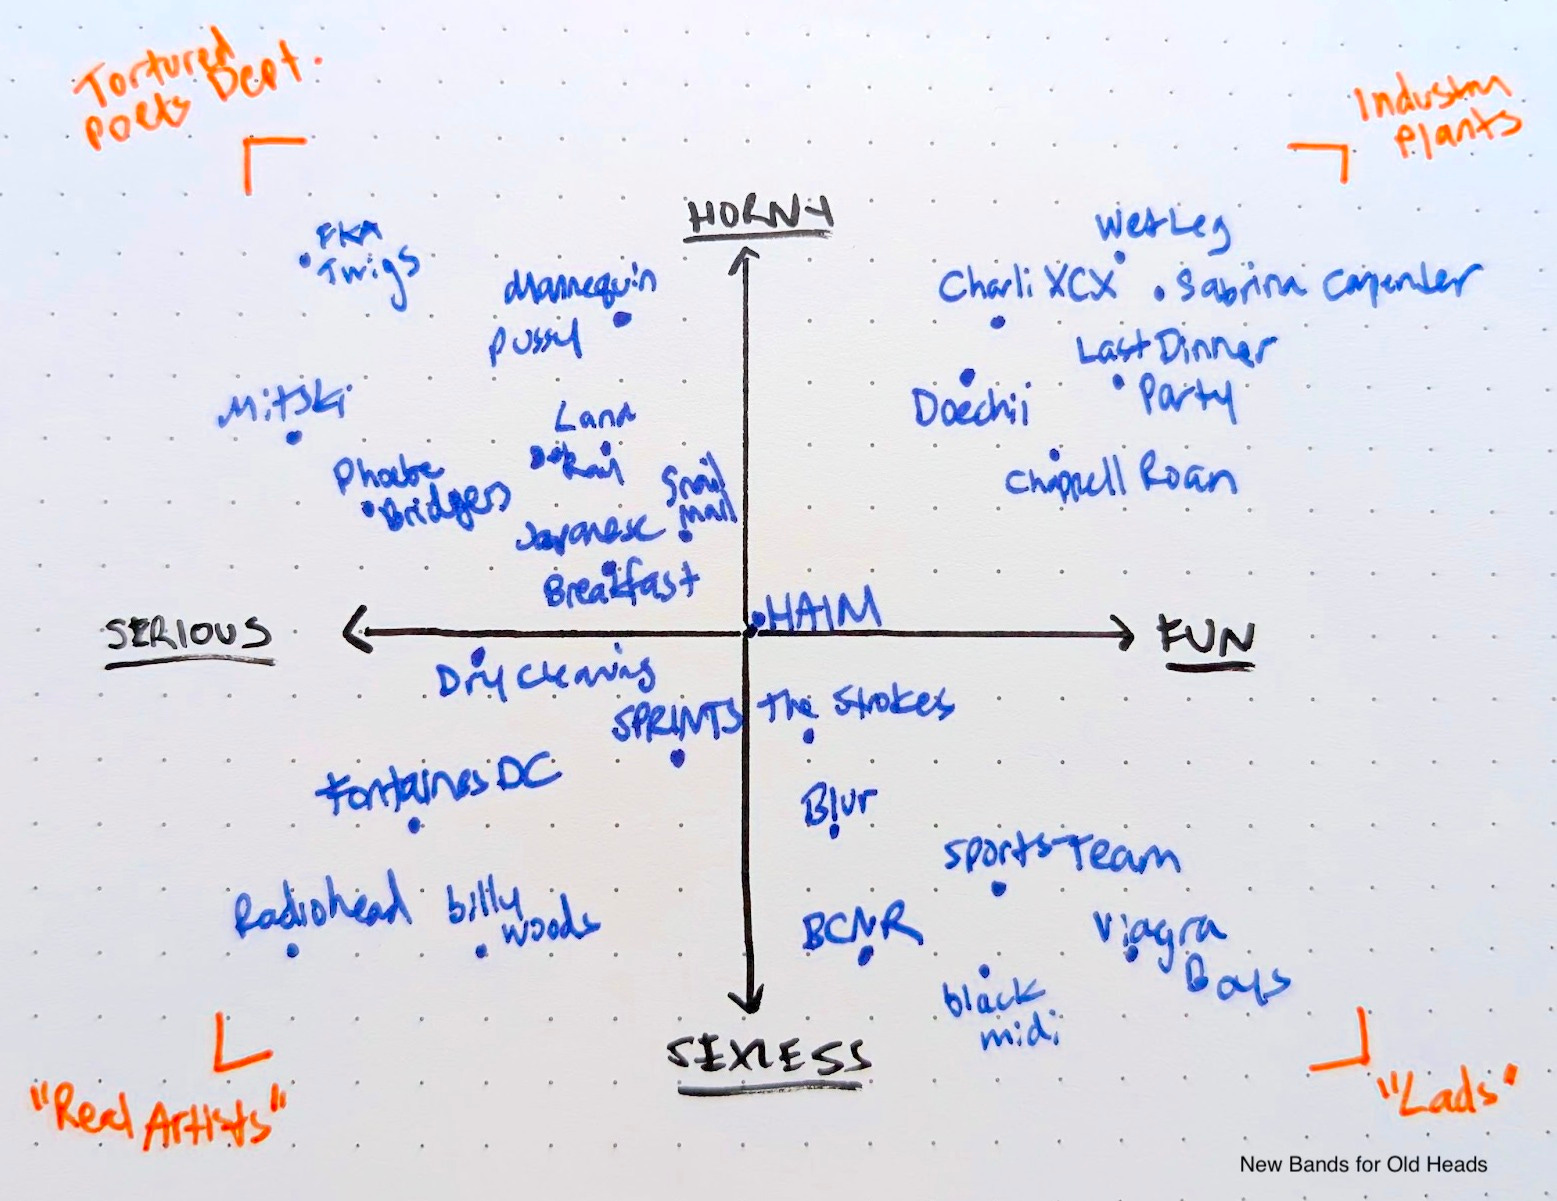 Tortured
Poets Dept.
Industry
Plants
HORNY
FKA
Twigs
Mannequin
Pussy
Wet Leg
Charli XCX
Sabrina Carpenter
Last Dinner
Party
Doechii
Chappell Roan
Mitski
Lana
Del
Rail
Phoebe
Bridgers
Snail
Mail
Japanese
Breakfast
SERIOUS
HAIM
FUN
Dry Cleaning
SPRINTS
The Strokes
Fontaines DC
Blur
Sports Team
Radiohead
billy
woods
BCNR
Viagra
Boys
black
midi
SEXLESS
"Real Artists"
"Lads"
New Bands for Old Heads